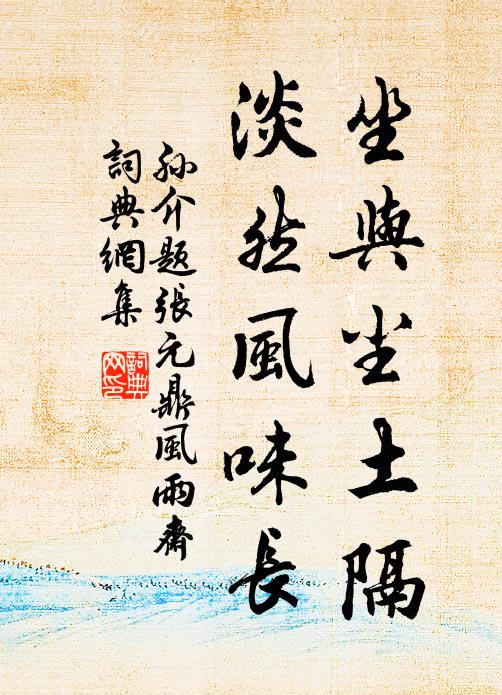 坐與尘土隔
淡然風味長
孫介題張元鼎風雨齋
詞典網集
詞典
网印